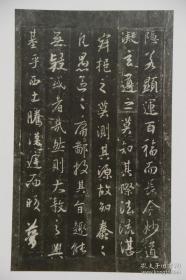 隱若顯運百福而長今妙道
凝玄遵之莫知其際法流湛
寂挹之莫測其源故知蠢々
凡愚區々庸鄙投其旨趣能
無疑惑者哉然則大教之興
基乎西土騰漢庭而皎夢